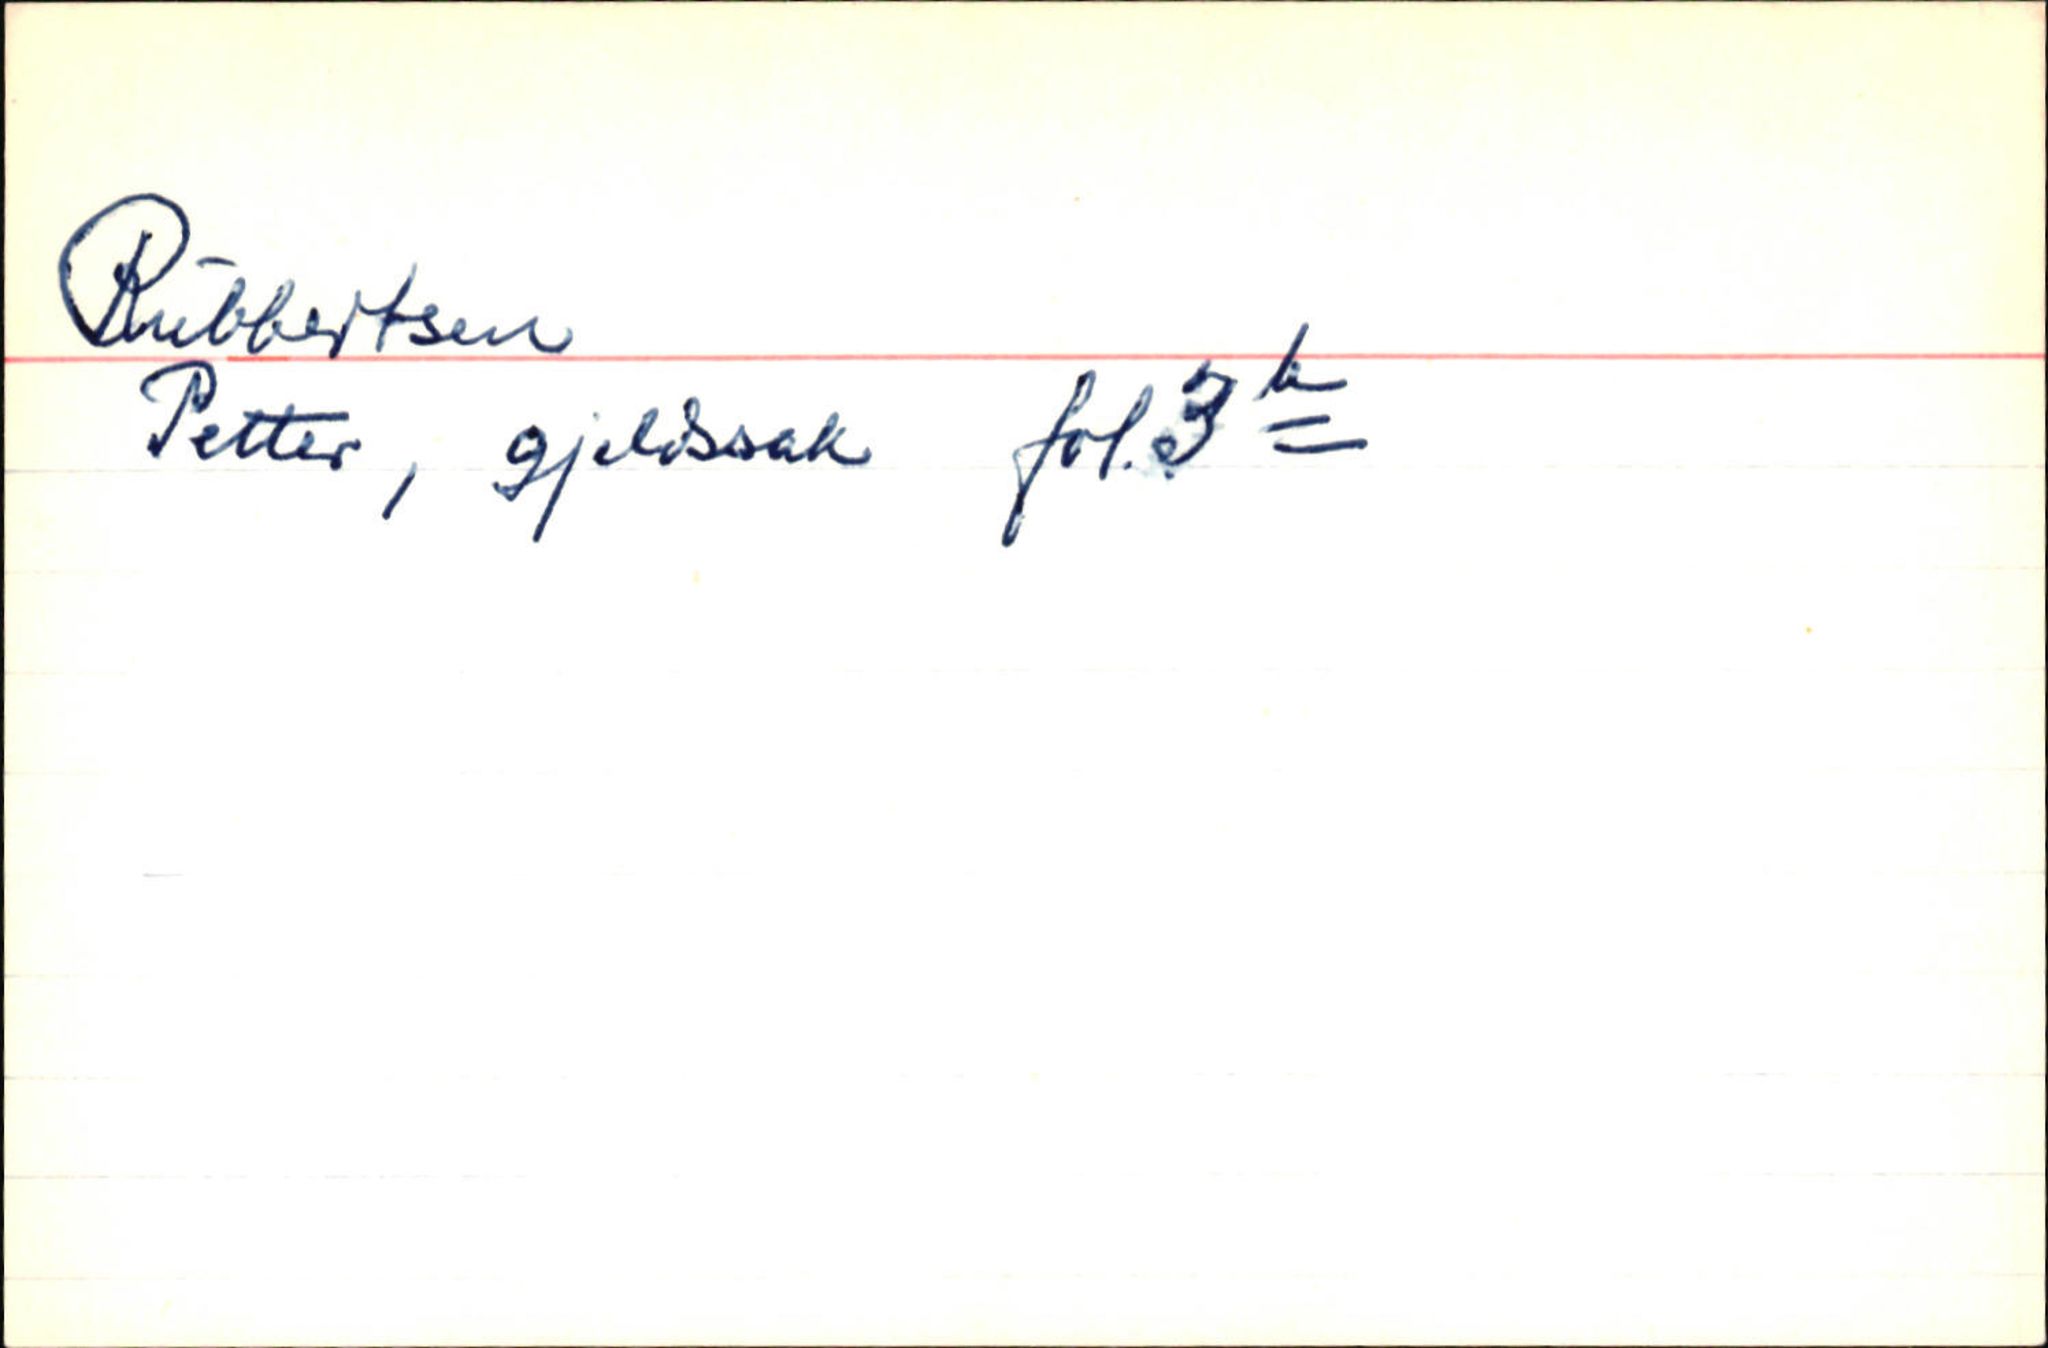 Rubbertsen
Petter, gjeldssak fol. 3 b